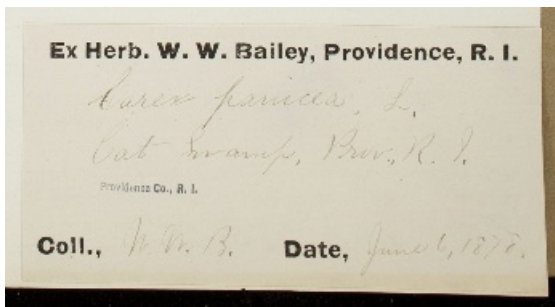 Ex Herb. W. W. Bailey, Providence, R. I.
Carex panicea, L.
Cat Swamp, Prov., R. I.
Providence Co., R. I.
Coll., W. W. B. Date, June 6, 1878.